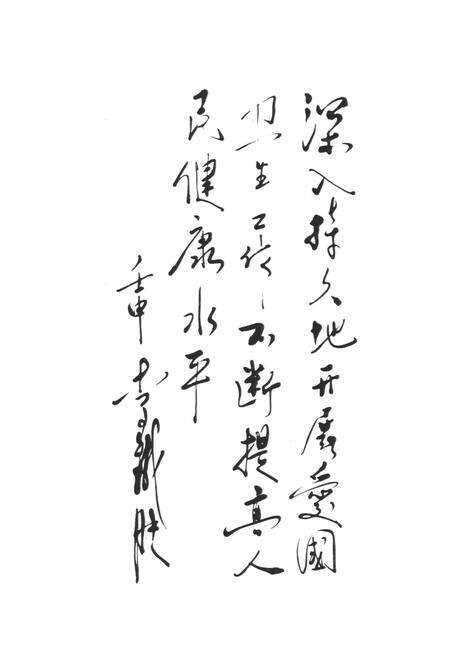 深入持久地开展爱國
卫生工作，不断提高人
民健康水平
壬申